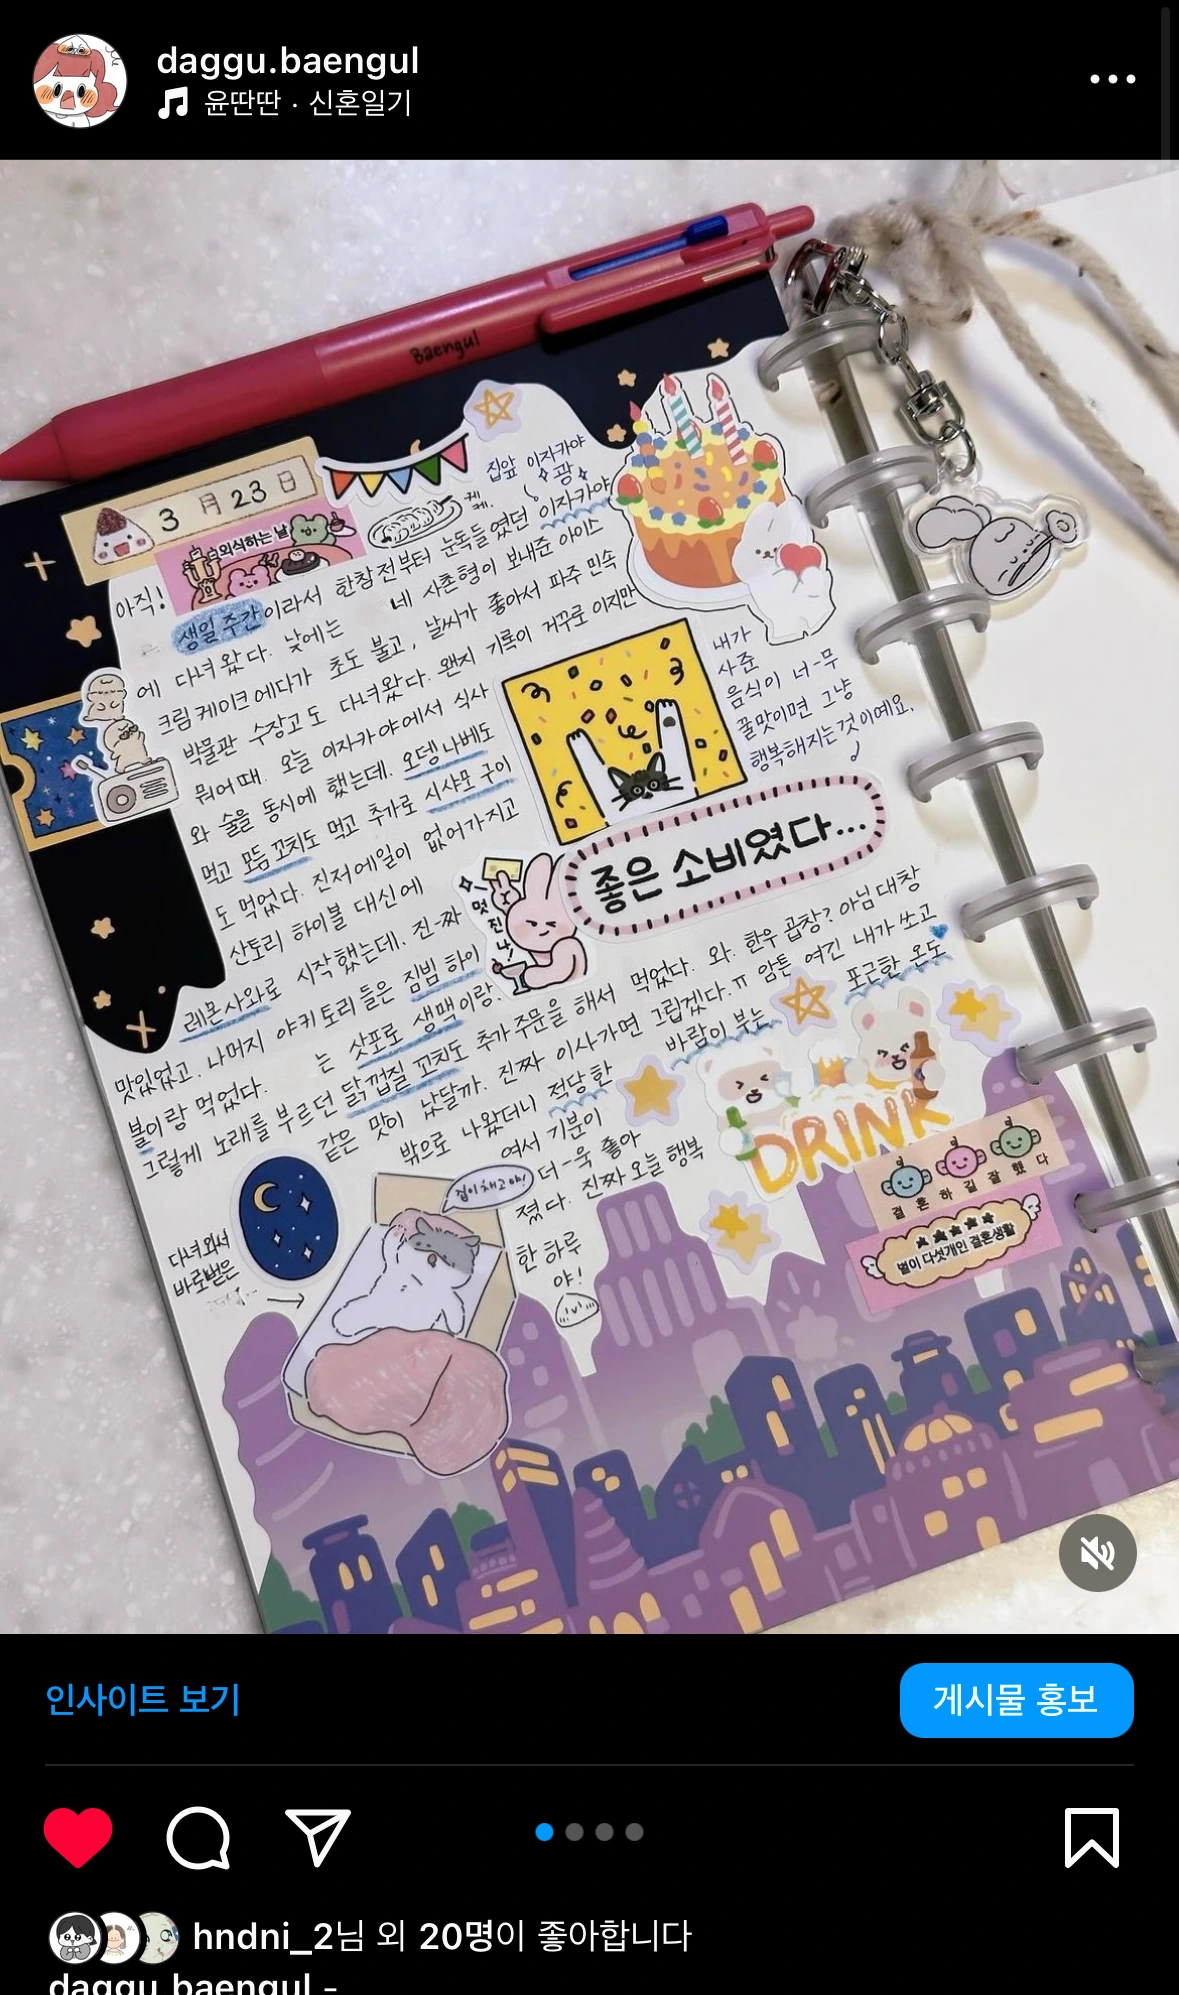 daggu.baengul
윤딴딴 · 신혼일기
Baengul
3 月 23 日
외식하는 날
집앞 이자카야
광
아직!
생일 주간이라서 한참 전부터 눈독들였던 이자카야
에 다녀왔다. 낮에는 네 사촌형이 보내준 아이스
크림 케이크에다가 초도 불고, 날씨가 좋아서 파주 민속
박물관 수장고도 다녀왔다. 왠지 기록이 거꾸로이지만
뭐어때. 오늘 이자카야에서 식사
와 술을 동시에 했는데. 오뎅나베도
먹고 모듬 꼬치도 먹고 추가로 시샤모 구이
도 먹었다. 진저에일이 없어가지고
산토리 하이볼 대신에
레몬사와로 시작했는데. 진-짜
맛있었고. 나머지 야키토리들은 짐빔 하이
볼이랑 먹었다. 는 삿포로 생맥이랑.
그렇게 노래를 부르던 닭껍질 꼬치도 추가주문을 해서 먹었다. 와. 한우 곱창? 아님 대창
같은 맛이 났달까. 진짜 이사가면 그립겠다.ㅠ 암튼 여긴 내가 쏘고
밖으로 나왔더니 적당한 바람이 부는 포근한 온도
여서 기분이
더-욱 좋아
졌다. 진짜 오늘 행복
한 하루
야!
내가
사준
음식이 너-무
꿀맛이면 그냥
행복해지는것이예요.
좋은 소비였다...
멋진나!
DRINK
결혼하길잘했다
별이 다섯개인 결혼생활
다녀와서
바로뻗은
인사이트 보기
게시물 홍보
hndni_2님 외 20명이 좋아합니다
daggu.baengul -